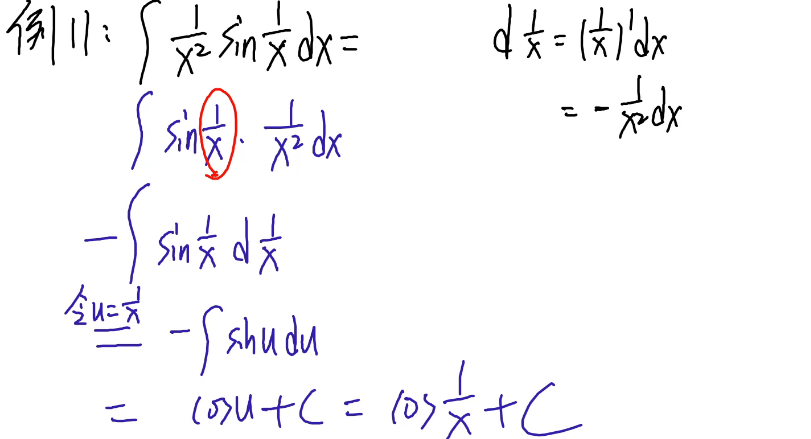 例11: ∫ 1/x² sin 1/x dx =
d 1/x = (1/x)' dx
= - 1/x² dx
∫ sin 1/x · 1/x² dx
- ∫ sin 1/x d 1/x
令u=1/x
= - ∫ sin u du
= cos u + C = cos 1/x + C